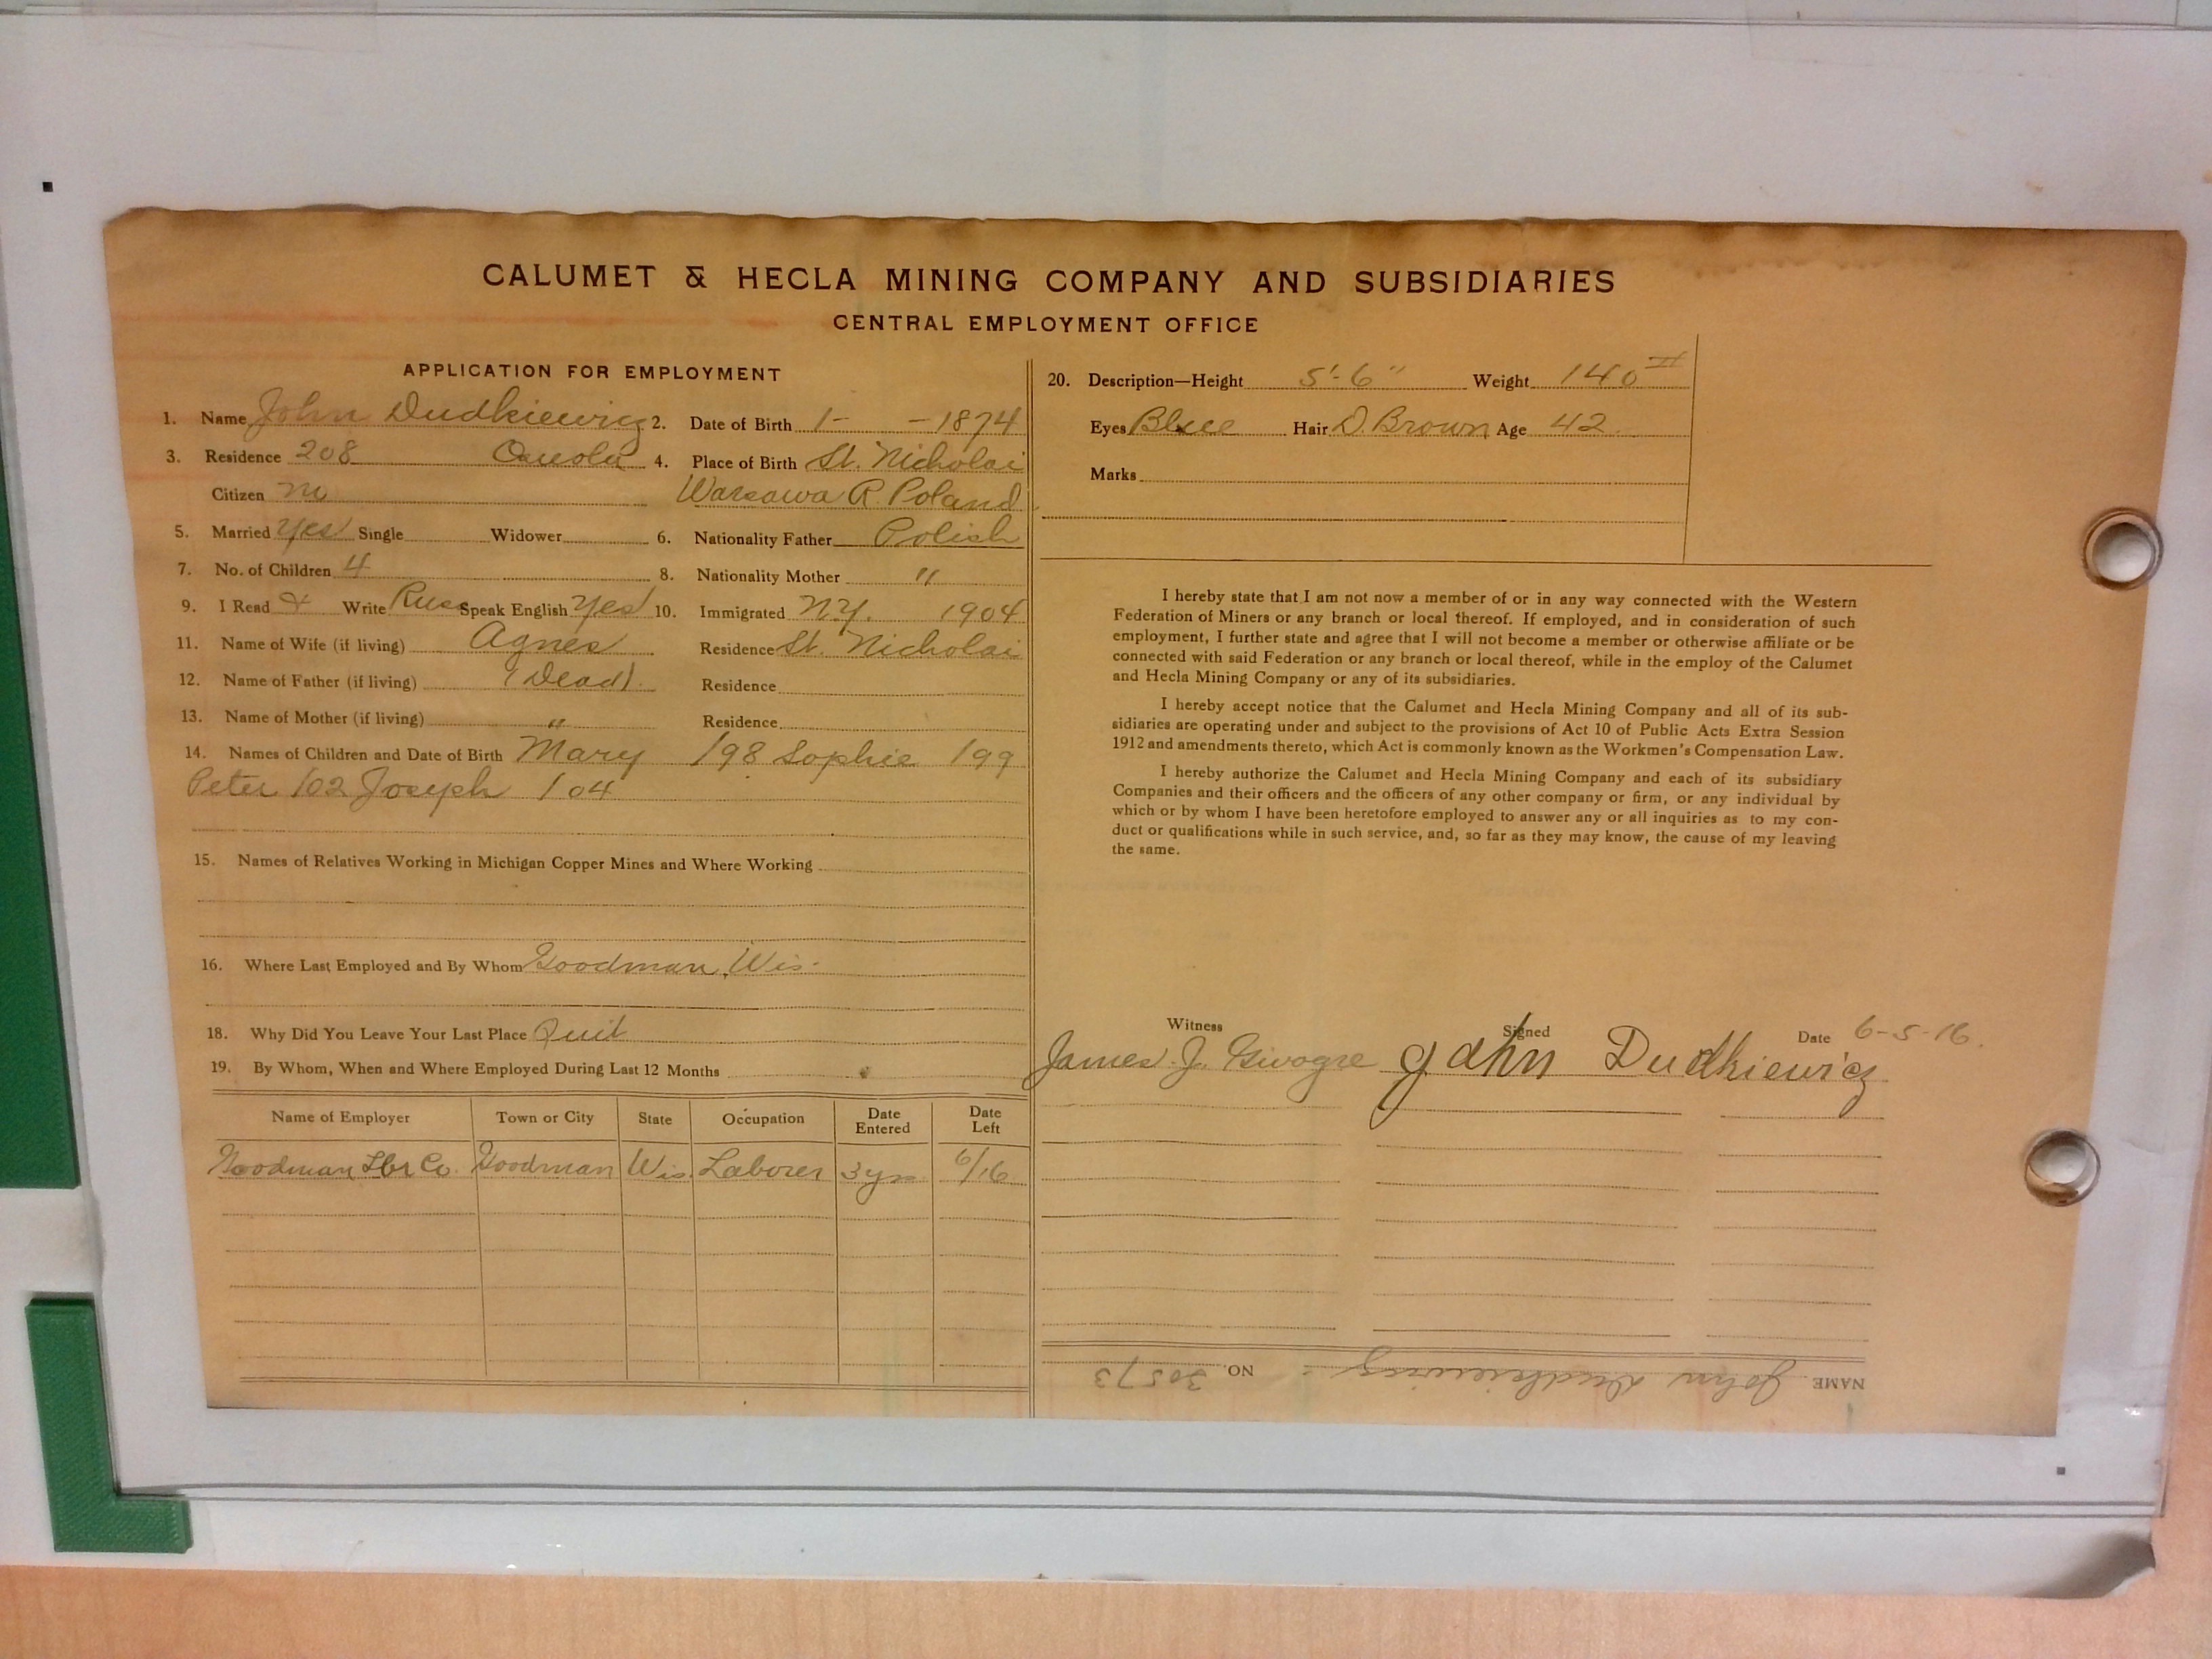 CALUMET & HECLA MINING COMPANY AND SUBSIDIARIES
CENTRAL EMPLOYMENT OFFICE
APPLICATION FOR EMPLOYMENT
1. Name John Dudkiewicz 2. Date of Birth 1- -1874
3. Residence 208 Osceola 4. Place of Birth St. Nicholai
Citizen no Warsawa R. Poland
5. Married Yes Single Widower 6. Nationality Father Polish
7. No. of Children 4 8. Nationality Mother "
9. I Read & Write Russ Speak English Yes 10. Immigrated N.Y. 1904
11. Name of Wife (if living) Agnes Residence St. Nicholai
12. Name of Father (if living) (Dead) Residence
13. Name of Mother (if living) " Residence
14. Names of Children and Date of Birth Mary 198 Sophie 199
Peter 102 Joseph 104
15. Names of Relatives Working in Michigan Copper Mines and Where Working
16. Where Last Employed and By Whom Goodman, Wis.
18. Why Did You Leave Your Last Place Quit
19. By Whom, When and Where Employed During Last 12 Months
Name of Employer Town or City State Occupation Date Entered Date Left
Goodman Lbr Co. Goodman Wis. Laborer 3 yrs 6/16
20. Description—Height 5'-6" Weight 140 #
Eyes Blue Hair D. Brown Age 42
Marks
I hereby state that I am not now a member of or in any way connected with the Western
Federation of Miners or any branch or local thereof. If employed, and in consideration of such
employment, I further state and agree that I will not become a member or otherwise affiliate or be
connected with said Federation or any branch or local thereof, while in the employ of the Calumet
and Hecla Mining Company or any of its subsidiaries.
I hereby accept notice that the Calumet and Hecla Mining Company and all of its sub-
sidiaries are operating under and subject to the provisions of Act 10 of Public Acts Extra Session
1912 and amendments thereto, which Act is commonly known as the Workmen's Compensation Law.
I hereby authorize the Calumet and Hecla Mining Company and each of its subsidiary
Companies and their officers and the officers of any other company or firm, or any individual by
which or by whom I have been heretofore employed to answer any or all inquiries as to my con-
duct or qualifications while in such service, and, so far as they may know, the cause of my leaving
the same.
Witness Signed Date 6-5-16.
James J. John Dudkiewicz
NAME John Dudkiewicz NO. 30573